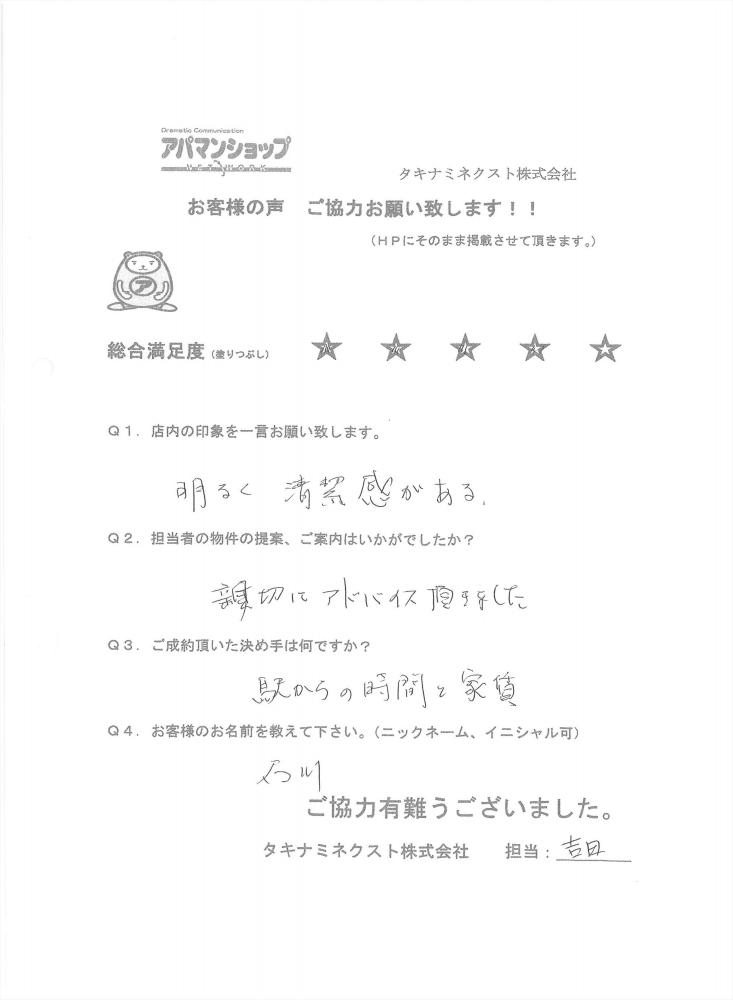 Dramatic Communication
アパマンショップ
NETWORK
タキナミネクスト株式会社
お客様の声　ご協力お願い致します！！
（ＨＰにそのまま掲載させて頂きます。）
ア
総合満足度（塗りつぶし）
Ｑ１．店内の印象を一言お願い致します。
明るく 清潔感がある。
Ｑ２．担当者の物件の提案、ご案内はいかがでしたか？
親切に アドバイス 頂きました
Ｑ３．ご成約頂いた決め手は何ですか？
駅からの時間と家賃
Ｑ４．お客様のお名前を教えて下さい。（ニックネーム、イニシャル可）
石川
ご協力有難うございました。
タキナミネクスト株式会社　担当：吉田